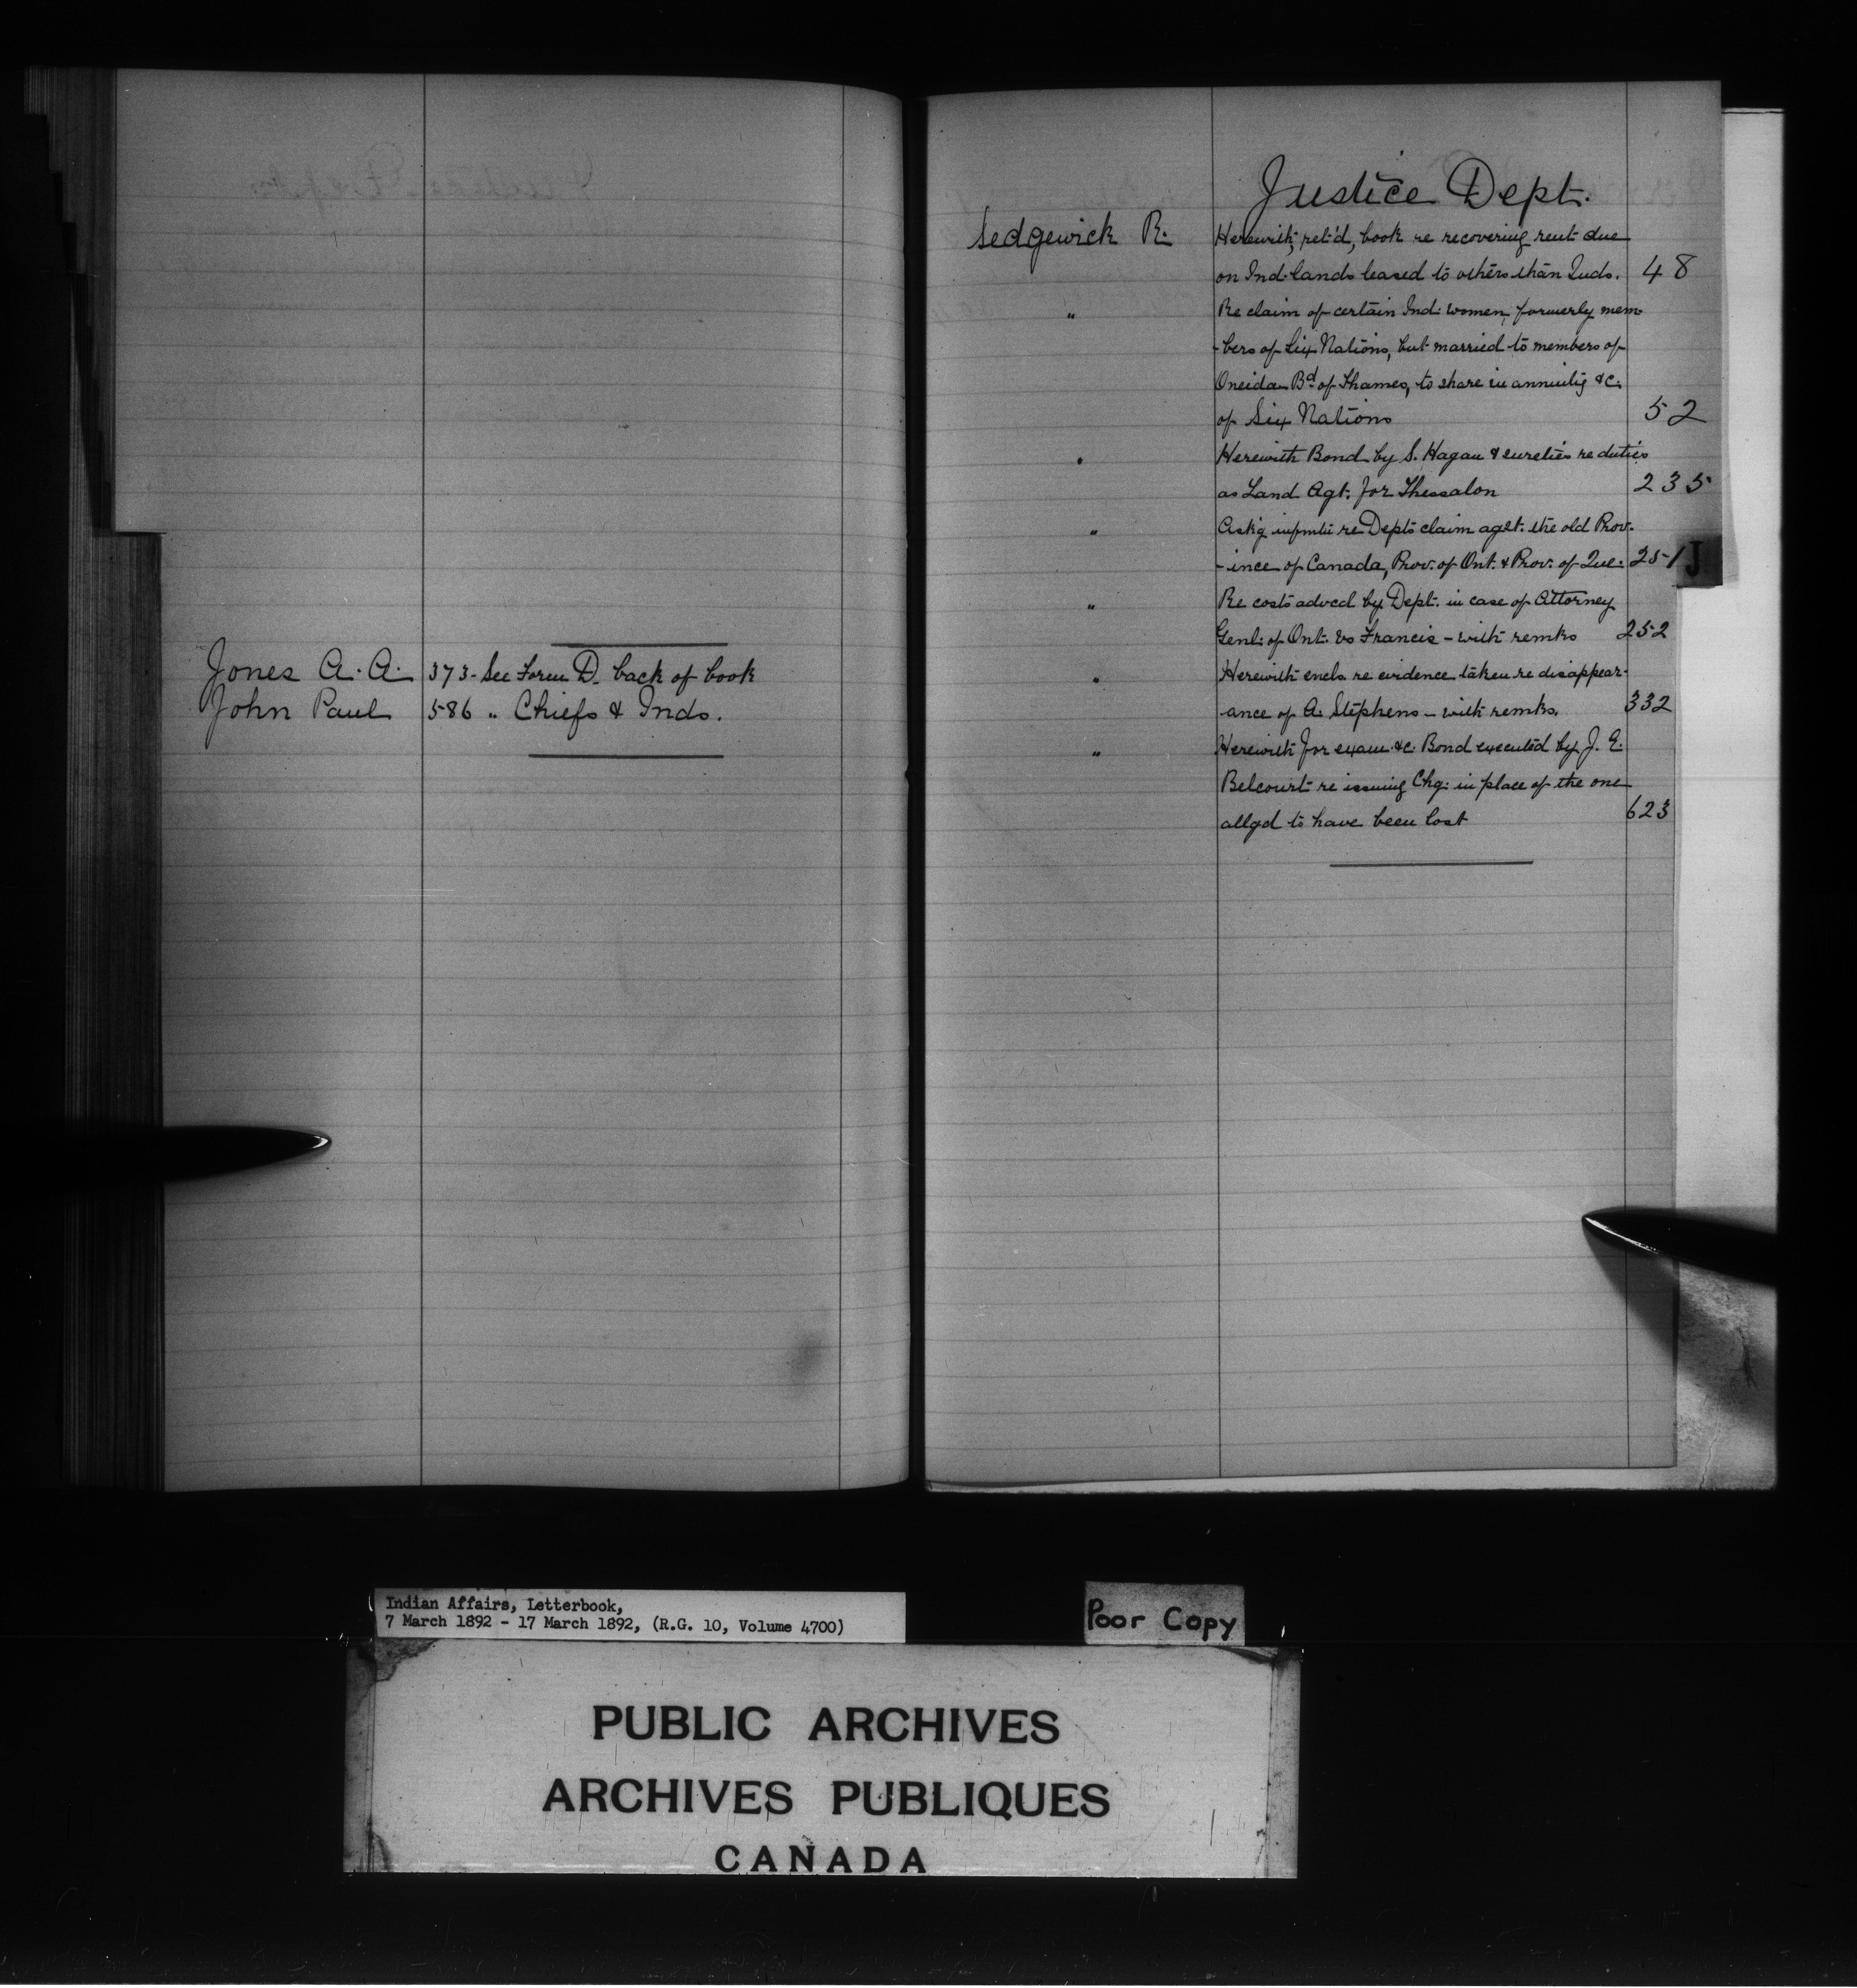 Jones A. A. 373 - See Form D. back of book
John Paul 586 " Chiefs & Inds.
Justice Dept.
Sedgewick R. Herewith, ret'd, book re recovering rent due
on Ind. lands leased to others than Inds. 48
" Re claim of certain Ind: women, formerly mem-
-bers of Six Nations, but married to members of
Oneida Bd. of Thames, to share in annuity &c.
of Six Nations 52
" Herewith Bond by S. Hagan & sureties re duties
as Land Agt. for Thessalon 235
" Ask'g infmtn re Dept's claim agst. the old Prov-
-ince of Canada, Prov. of Ont. & Prov. of Que: 251
J
" Re costs advcd by Dept. in case of Attorney
Genl: of Ont. vs Francis - with remks 252
" Herewith encls. re evidence taken re disappear-
ance of A. Stephens - with remks. 332
" Herewith for exam. &c. Bond executed by J. E.
Belcourt re issuing Chq: in place of the one
allgd to have been lost 623
Indian Affairs, Letterbook,
7 March 1892 - 17 March 1892, (R.G. 10, Volume 4700)
Poor Copy
PUBLIC ARCHIVES
ARCHIVES PUBLIQUES
CANADA